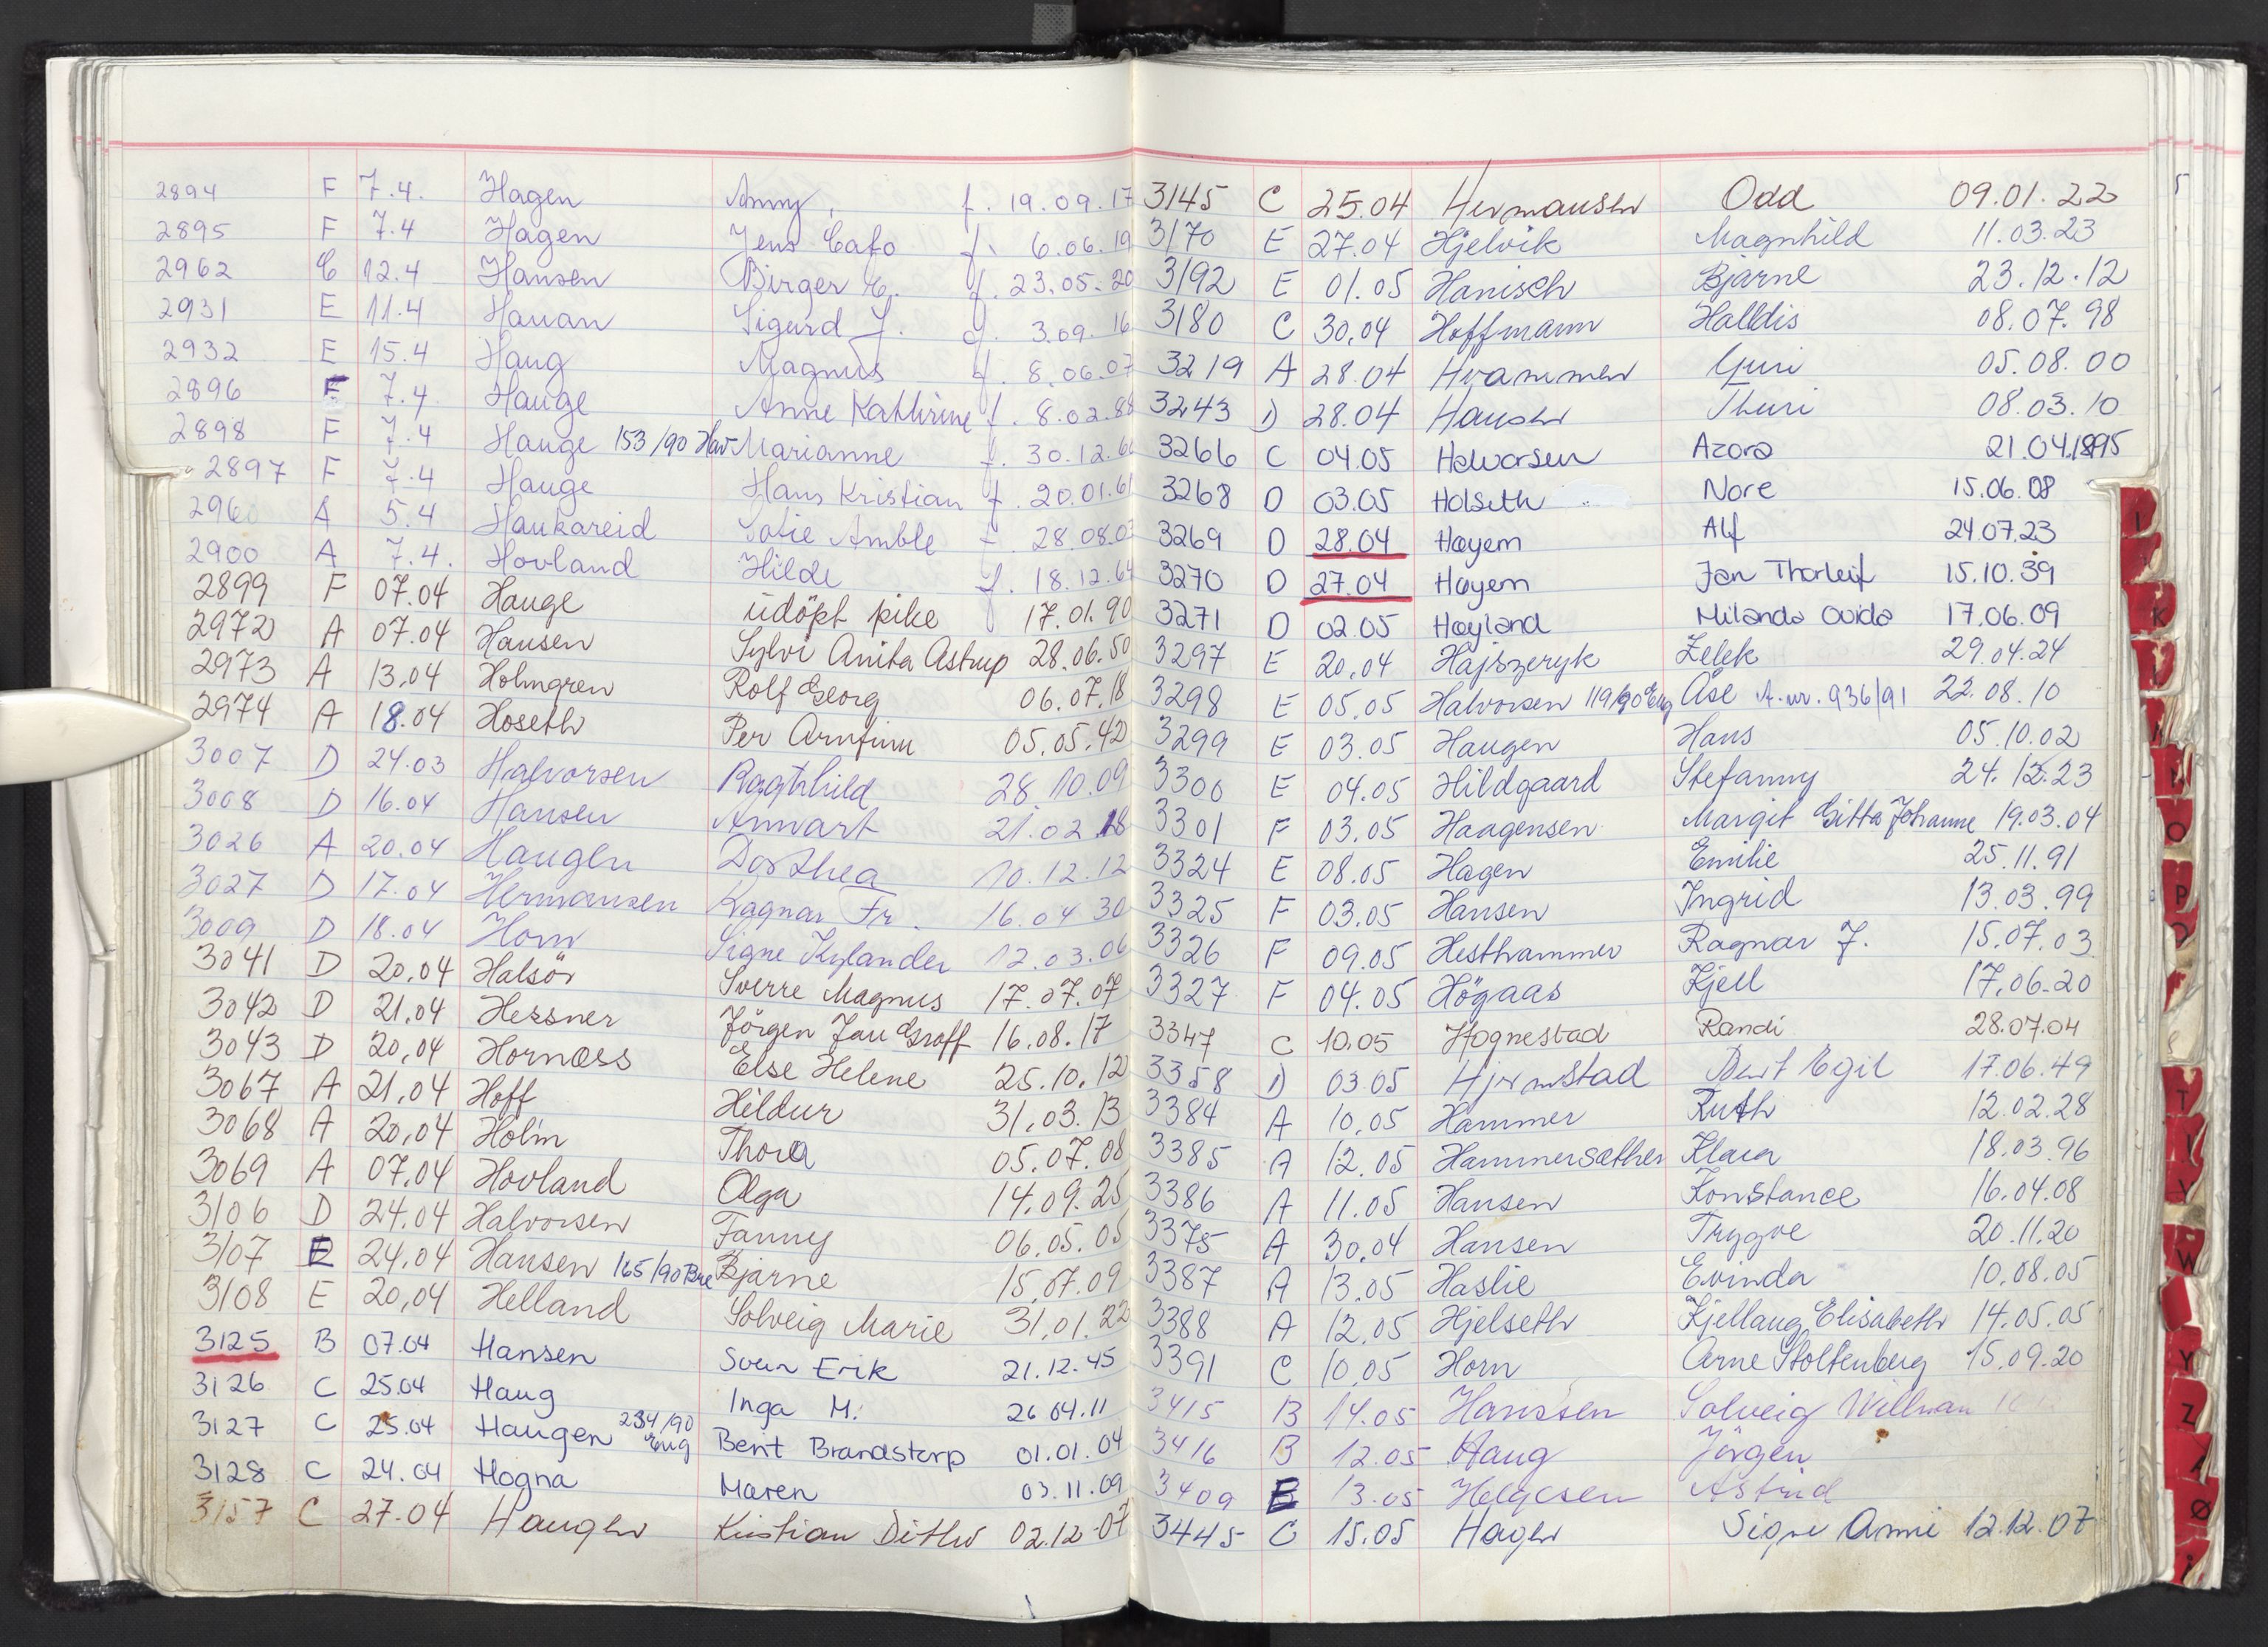 2894 F 7.4. Hagen Anny, f. 19.09.17
2895 F 7.4 Hagen Jens Cato f. 6.06.19
2962 C 12.4 Hansen Birger E. f. 23.05.20
2931 E 11.4 Hauan Sigurd J. f. 3.09.16
2932 E 15.4 Haug Magnus f. 8.06.07
2896 F 7.4 Hauge Anne Kathrine f. 8.02.88
2898 F 7.4 Hauge 153/90 Hav Marianne f. 30.12.6
2897 F 7.4 Hauge Hans Kristian f. 20.01.61
2960 A 5.4 Haukareid Sofie Amble f. 28.08.03
2900 A 7.4. Hovland Hilde f. 18.12.64
2899 F 07.04 Hauge udöpt pike 17.01.90
2972 A 07.04 Hansen Sylvi Anita Astrup 28.06.50
2973 A 13.04 Holmgren Rolf Georg 06.07.18
2974 A 18.04 Hoseth Per Arnfinn 05.05.42
3007 D 24.03 Halvorsen Ragnhild 28.10.09
3008 D 16.04 Hansen Annart 21.02.18
3026 A 20.04 Haugen Dorthea 10.12.12
3027 D 17.04 Hermansen Ragnar Fr. 16.04 30
3009 D 18.04 Horn Signe Kylander 12.03.06
3041 D 20.04 Halsör Sverre Magnus 17.07.07
3042 D 21.04 Hessner Jörgen Jan Groff 16.08.17
3043 D 20.04 Hornæss Else Helene 25.10.12
3067 A 21.04 Hoff Hildur 31.03.13
3068 A 20.04 Holm Thora 05.07.08
3069 A 07.04 Hovland Olga 14.09.25
3106 D 24.04 Halvorsen Fanny 06.05.05
3107 E 24.04 Hansen 165/90 Bre Bjarne 15.07.09
3108 E 20.04 Helland Solveig Marie 31.01.22
3125 B 07.04 Hansen Svein Erik 21.12.45
3126 C 25.04 Haug Inga M. 26.04.11
3127 C 25.04 Haugen 234/90 Eng Berit Brandstorp 01.01.04
3128 C 24.04 Hogna Maren 03.11.09
3157 C 27.04 Haugen Kristian Ditlev 02.12.07
3145 C 25.04 Hermansen Odd 09.01.22
3170 E 27.04 Hjelvik Magnhild 11.03.23
3192 E 01.05 Hanisch Bjarne 23.12.12
3180 C 30.04 Hoffmann Halldis 08.07.98
3219 A 28.04 Hvammen Guri 05.08.00
3243 D 28.04 Hansen Thuri 08.03.10
3266 C 04.05 Halvorsen Azora 21.04.1895
3268 D 03.05 Holseth Nore 15.06.08
3269 D 28.04 Høyem Alf 24.07.23
3270 D 27.04 Høyem Jan Thorleif 15.10.39
3271 D 02.05 Høyland Milanda Ovida 17.06.09
3297 E 20.04 Hajszeryk Zelek 29.04.24
3298 E 05.05 Halvorsen 119/90 Eng Åse A.nr. 936/91 22.08.10
3299 E 03.05 Haugen Hans 05.10.02
3300 E 04.05 Hildgaard Stefanny 24.12.23
3301 F 03.05 Haagensen Margit Gitta Johanne 19.03.04
3324 E 08.05 Hagen Emilie 25.11.91
3325 F 03.05 Hansen Ingrid 13.03.99
3326 F 09.05 Hesthammer Ragnar J. 15.07.03
3327 F 04.05 Högaas Kjell 17.06.20
3347 C 10.05 Hognestad Randi 28.07.04
3358 D 03.05 Hjermstad Berit Egil 17.06.49
3384 A 10.05 Hammer Ruth 12.02.28
3385 A 12.05 Hammersæther Klara 18.03.96
3386 A 11.05 Hansen Konstance 16.04.08
3375 A 30.04 Hansen Trygve 20.11.20
3387 A 13.05 Haslie Evinda 10.08.05
3388 A 12.05 Hjelseth Kjellaug Elisabeth 14.05.05
3391 C 10.05 Horn Arne Stoltenberg 15.09.20
3415 B 14.05 Hanssen Solveig
3416 B 12.05 Haug Jörgen
3409 E 13.05 Helgesen Astrid
3445 C 15.05 Hagen Signe Anni 12.12.07